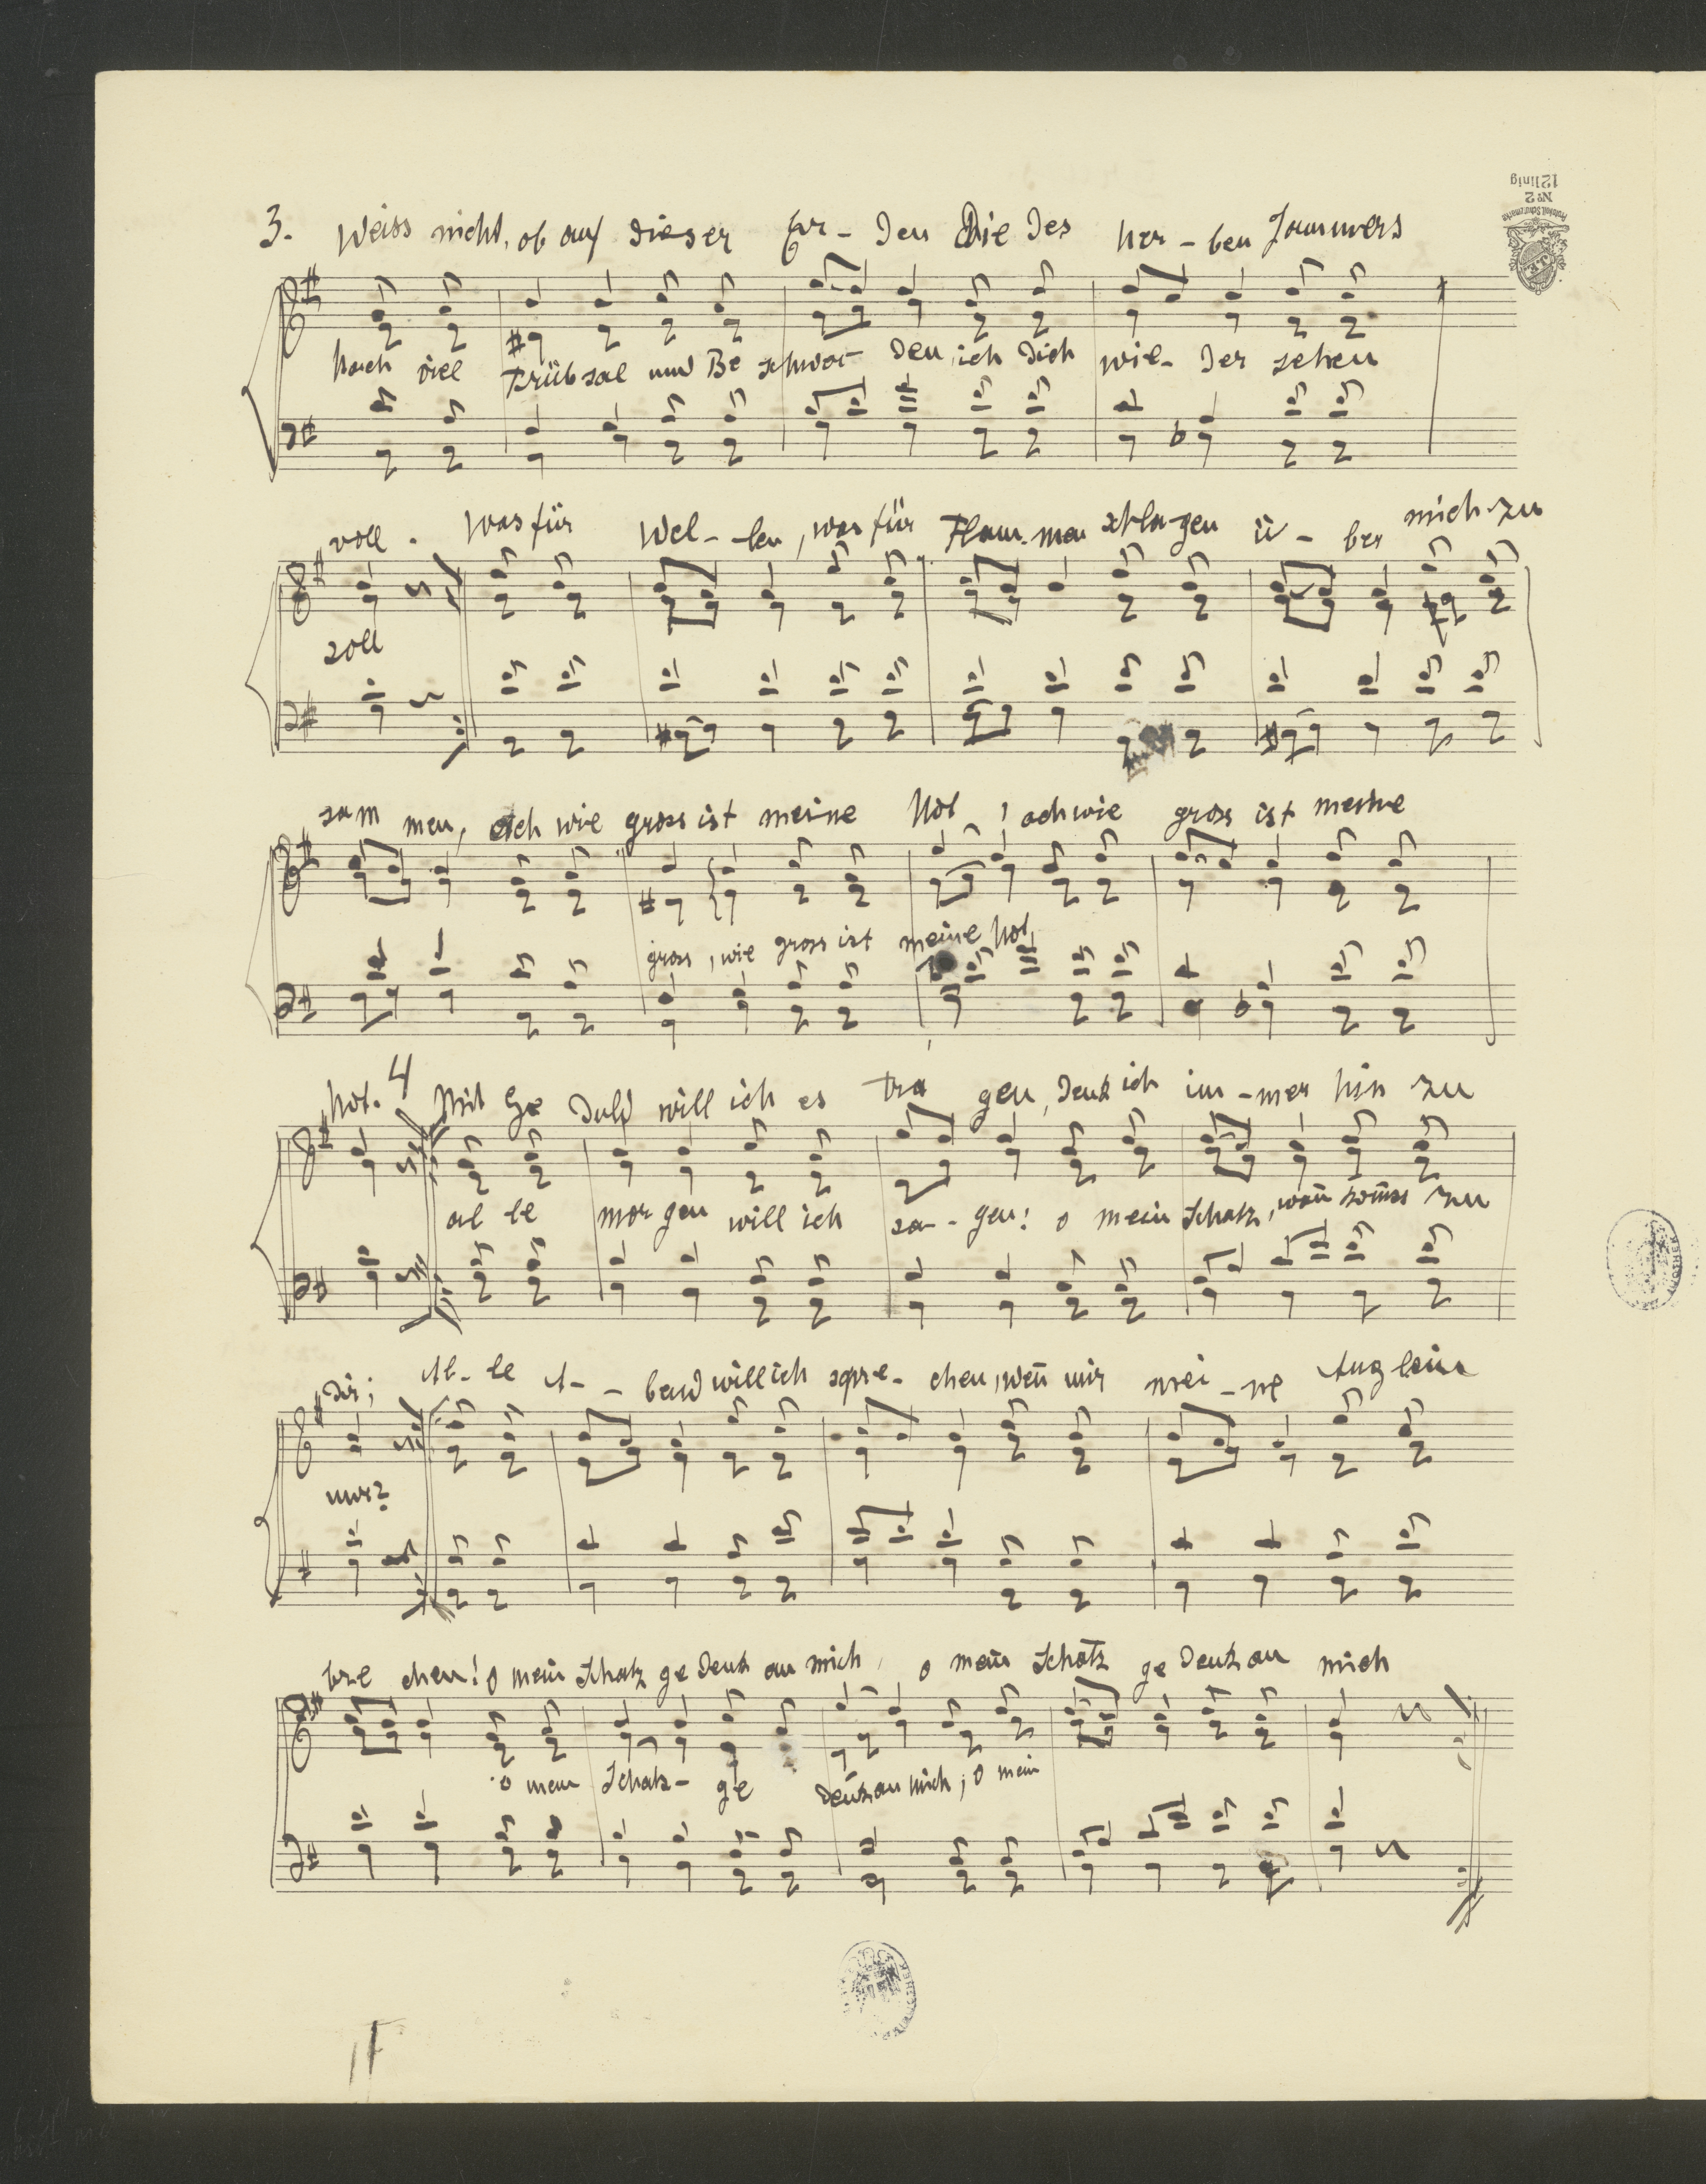 3. Weiss nicht, ob auf dieser Er - den Die des her - ben Jammers
Nach viel Trübsal und Be schwer den ich dich wie - der sehen
voll. Was für Wel - len, was für Flam - men schla - gen ü - ber mich zu
soll
sam men, ach wie gross ist meine Not, ach wie gross ist meine
gross, wie gross ist meine Not,
Not. 4 Mit Ge duld will ich es tra gen, denk ich im - mer hin zu
al le mor gen will ich sa - gen: o mein Schatz, wan̄ kom̄st zu
dir; Al - le A - bend will ich spre - chen, wen̄ mir mei - ne Auglein
mir?
bre chen! o mein Schatz ge denk an mich, o mein Schatz ge denk an mich
o mein Schatz - ge denk an mich; o mein
12linig
No 2
J.E.